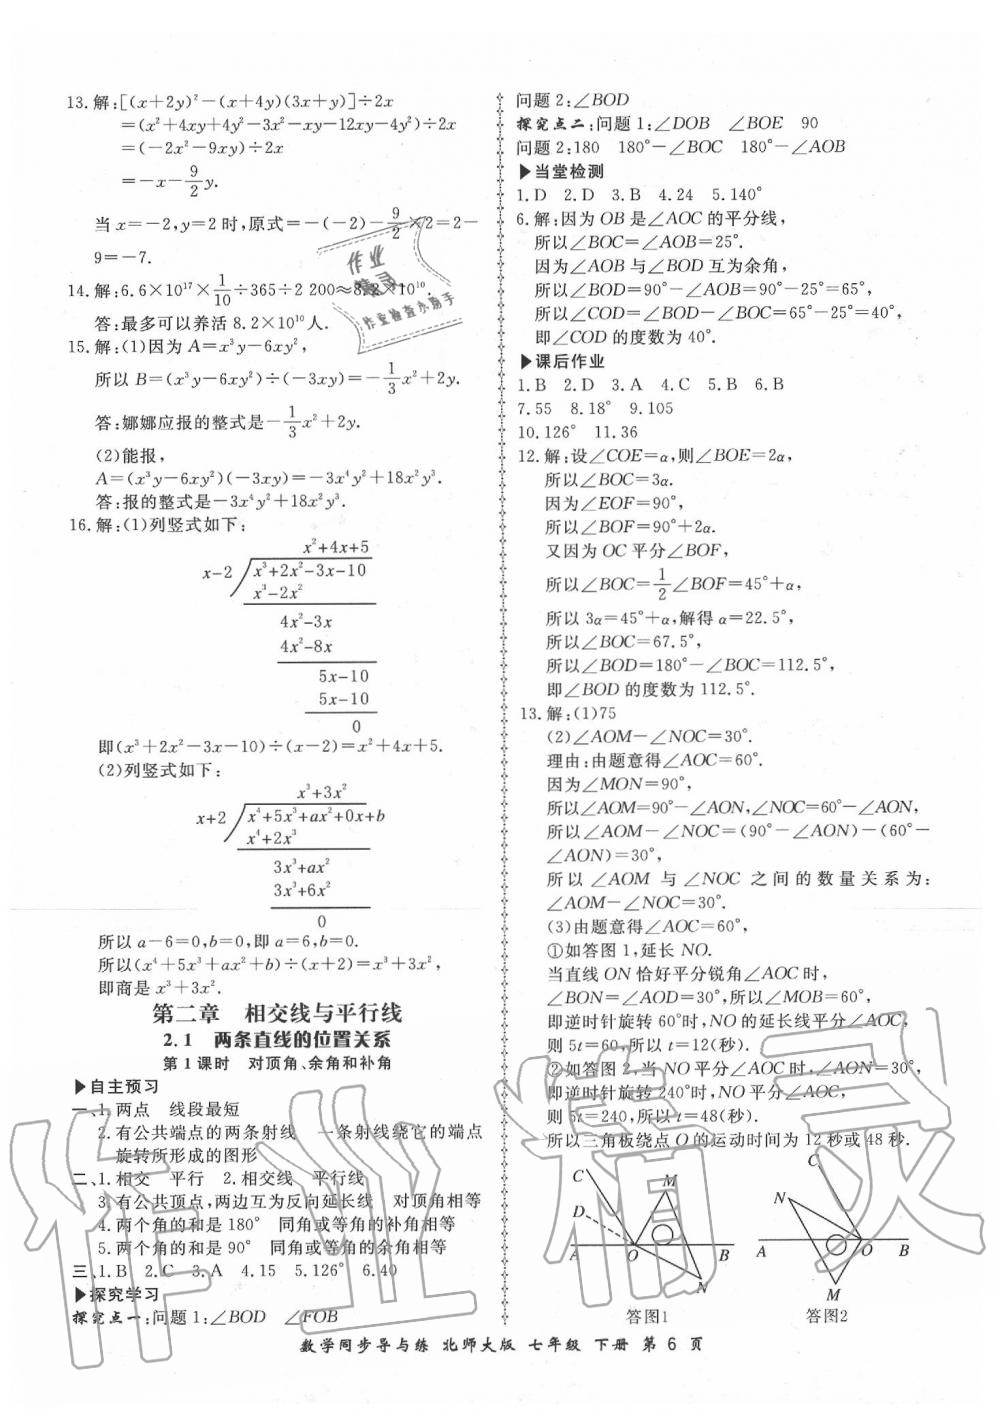 13.解:[(x+2y)²-(x+4y)(3x+y)]÷2x
=(x²+4xy+4y²-3x²-xy-12xy-4y²)÷2x
=(-2x²-9xy)÷2x
=-x-9/2y.
当x=-2,y=2时,原式=-(-2)-9/2×2=2-
9=-7.
14.解:6.6×10¹⁷×1/10÷365÷2 200≈8.2×10¹⁰.
答:最多可以养活8.2×10¹⁰人.
15.解:(1)因为A=x³y-6xy²,
所以B=(x³y-6xy²)÷(-3xy)=-1/3x²+2y.
答:娜娜应报的整式是-1/3x²+2y.
(2)能报,
A=(x³y-6xy²)(-3xy)=-3x⁴y²+18x²y³.
答:报的整式是-3x⁴y²+18x²y³.
16.解:(1)列竖式如下:
x²+4x+5
x-2 x³+2x²-3x-10
x³-2x²
4x²-3x
4x²-8x
5x-10
5x-10
0
即(x³+2x²-3x-10)÷(x-2)=x²+4x+5.
(2)列竖式如下:
x³+3x²
x+2 x⁴+5x³+ax²+0x+b
x⁴+2x³
3x³+ax²
3x³+6x²
0
所以a-6=0,b=0,即a=6,b=0.
所以(x⁴+5x³+ax²+b)÷(x+2)=x³+3x²,
即商是x³+3x².
第二章 相交线与平行线
2.1 两条直线的位置关系
第1课时 对顶角、余角和补角
▶自主预习
一、1.两点 线段最短
2.有公共端点的两条射线 一条射线绕它的端点
旋转所形成的图形
二、1.相交 平行 2.相交线 平行线
3.有公共顶点,两边互为反向延长线 对顶角相等
4.两个角的和是180° 同角或等角的补角相等
5.两个角的和是90° 同角或等角的余角相等
三、1.B 2.C 3.A 4.15 5.126° 6.40
▶探究学习
探究点一:问题1:∠BOD ∠FOB
问题2:∠BOD
探究点二:问题1:∠DOB ∠BOE 90
问题2:180 180°-∠BOC 180°-∠AOB
▶当堂检测
1.D 2.D 3.B 4.24 5.140°
6.解:因为OB是∠AOC的平分线,
所以∠BOC=∠AOB=25°.
因为∠AOB与∠BOD互为余角,
所以∠BOD=90°-∠AOB=90°-25°=65°,
所以∠COD=∠BOD-∠BOC=65°-25°=40°,
即∠COD的度数为40°.
▶课后作业
1.B 2.D 3.A 4.C 5.B 6.B
7.55 8.18° 9.105
10.126° 11.36
12.解:设∠COE=α,则∠BOE=2α,
所以∠BOC=3α.
因为∠EOF=90°,
所以∠BOF=90°+2α.
又因为OC平分∠BOF,
所以∠BOC=1/2∠BOF=45°+α,
所以3α=45°+α,解得α=22.5°,
所以∠BOC=67.5°,
所以∠BOD=180°-∠BOC=112.5°,
即∠BOD的度数为112.5°.
13.解:(1)75
(2)∠AOM-∠NOC=30°.
理由:由题意得∠AOC=60°.
因为∠MON=90°,
所以∠AOM=90°-∠AON,∠NOC=60°-∠AON,
所以∠AOM-∠NOC=(90°-∠AON)-(60°-
∠AON)=30°,
所以∠AOM与∠NOC之间的数量关系为:
∠AOM-∠NOC=30°.
(3)由题意得∠AOC=60°,
①如答图1,延长NO.
当直线ON恰好平分锐角∠AOC时,
∠BON=∠AOD=30°,所以∠MOB=60°,
即逆时针旋转60°时,NO的延长线平分∠AOC,
则5t=60,所以t=12(秒).
②如答图2,当NO平分∠AOC时,∠AON=30°,
即逆时针旋转240°时,NO平分∠AOC,
则5t=240,所以t=48(秒).
所以三角板绕点O的运动时间为12秒或48秒.
C M
D
A O B
N
答图1
C
N
A O B
M
答图2
数学同步导与练 北师大版 七年级 下册 第6页
作业精灵
作业
精灵
作业检查小助手